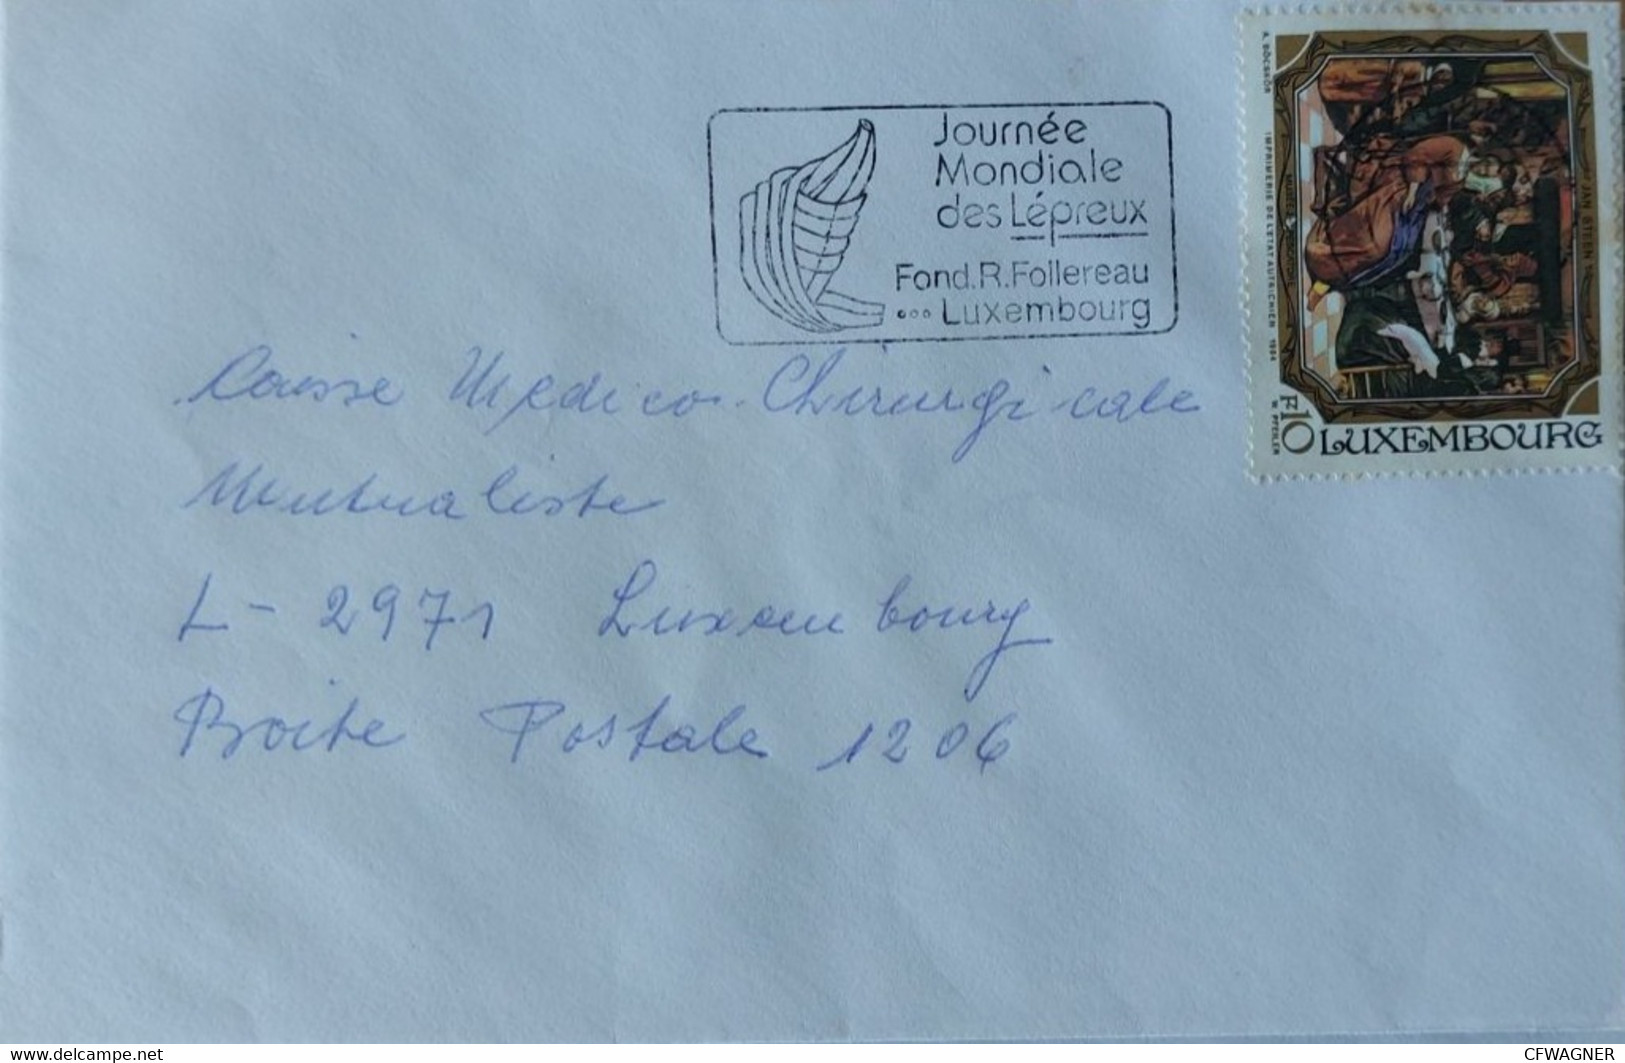 Journée
Mondiale
des Lépreux
Fond.R.Follereau
Luxembourg
JAN STEEN
A. BÖCSKÖR
IMPRIMERIE DE L'ETAT AUTRICHIEN 1984
W. PFEILER
F10 LUXEMBOURG
Caisse Medico-Chirurgicale
Mutualiste
L-2971 Luxembourg
Boite Postale 1206
www.delcampe.net
CFWAGNER